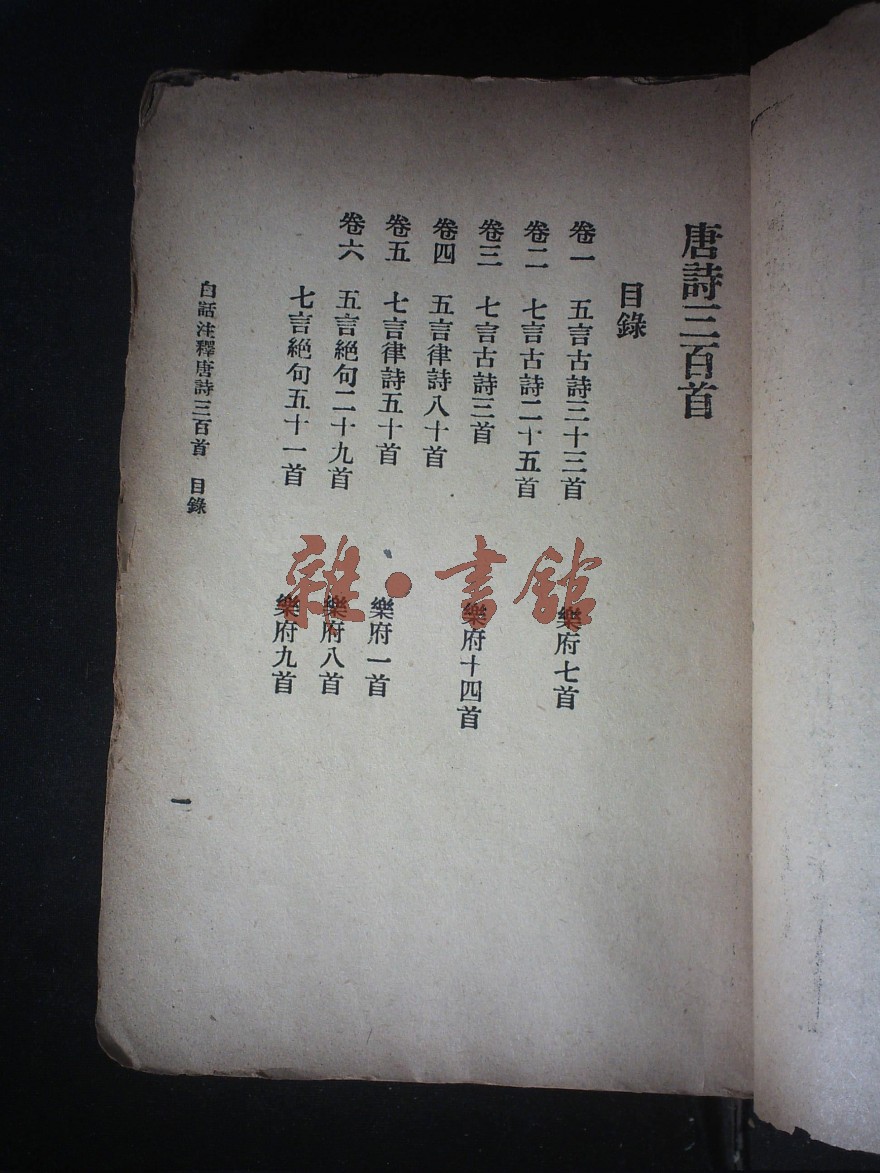 唐詩三百首
目錄
卷一 五言古詩三十三首 樂府七首
卷二 七言古詩二十五首
卷三 七言古詩三首 樂府十四首
卷四 五言律詩八十首
卷五 七言律詩五十首 樂府一首
卷六 五言絕句二十九首 樂府八首
七言絕句五十一首 樂府九首
白話注釋唐詩三百首 目錄
一
雜·書館